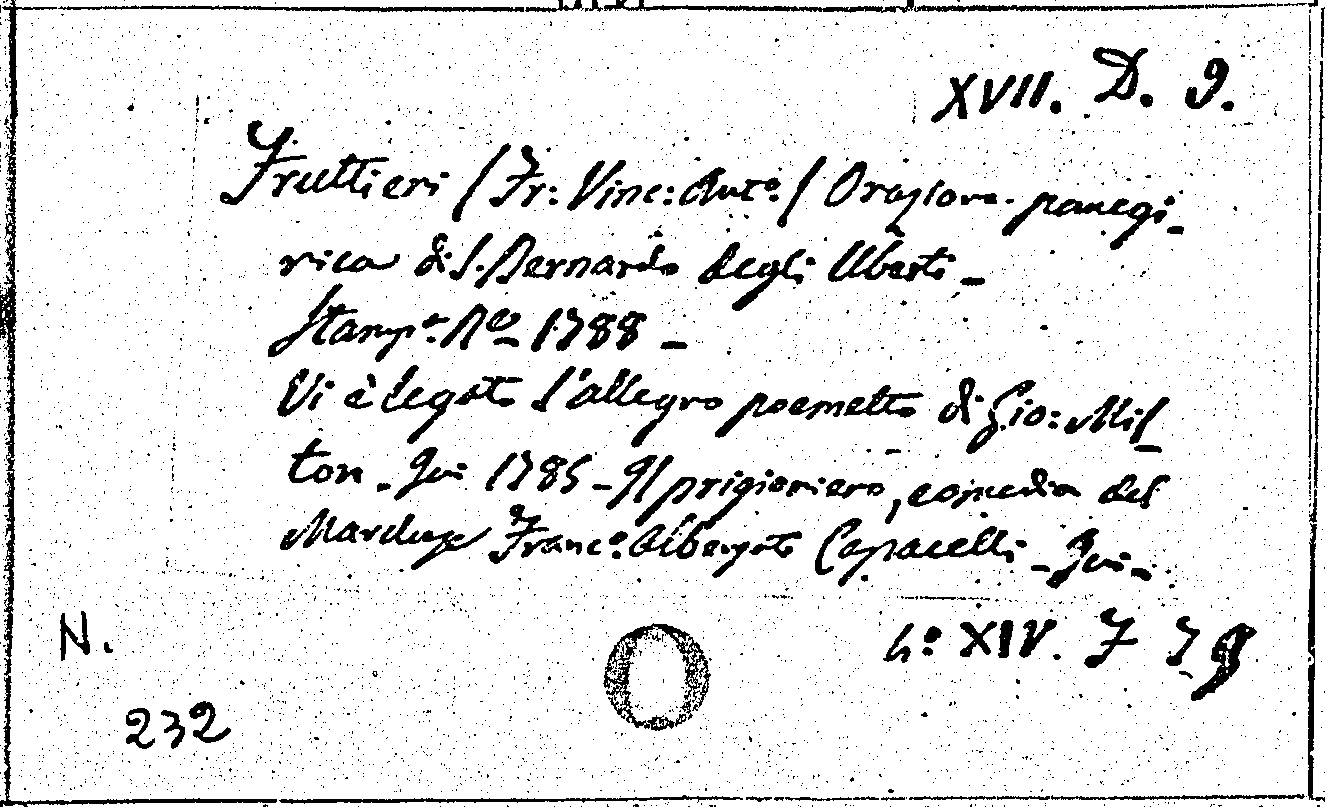 XVII. D. 9.
Fruttieri / Fr: Vinc: Ant.º / Orazione panegi_
rica di S. Bernardo degli Uberti _
Stamp.ª 1788 _
Vi è legato L'allegro poemetto di Gio: Mil_
ton _ Ivi 1785 _ Il prigioniero, comedia del
Marchese Franc.º Albergati Capacelli _ Ivi _
4.º XIV. F
N.
232